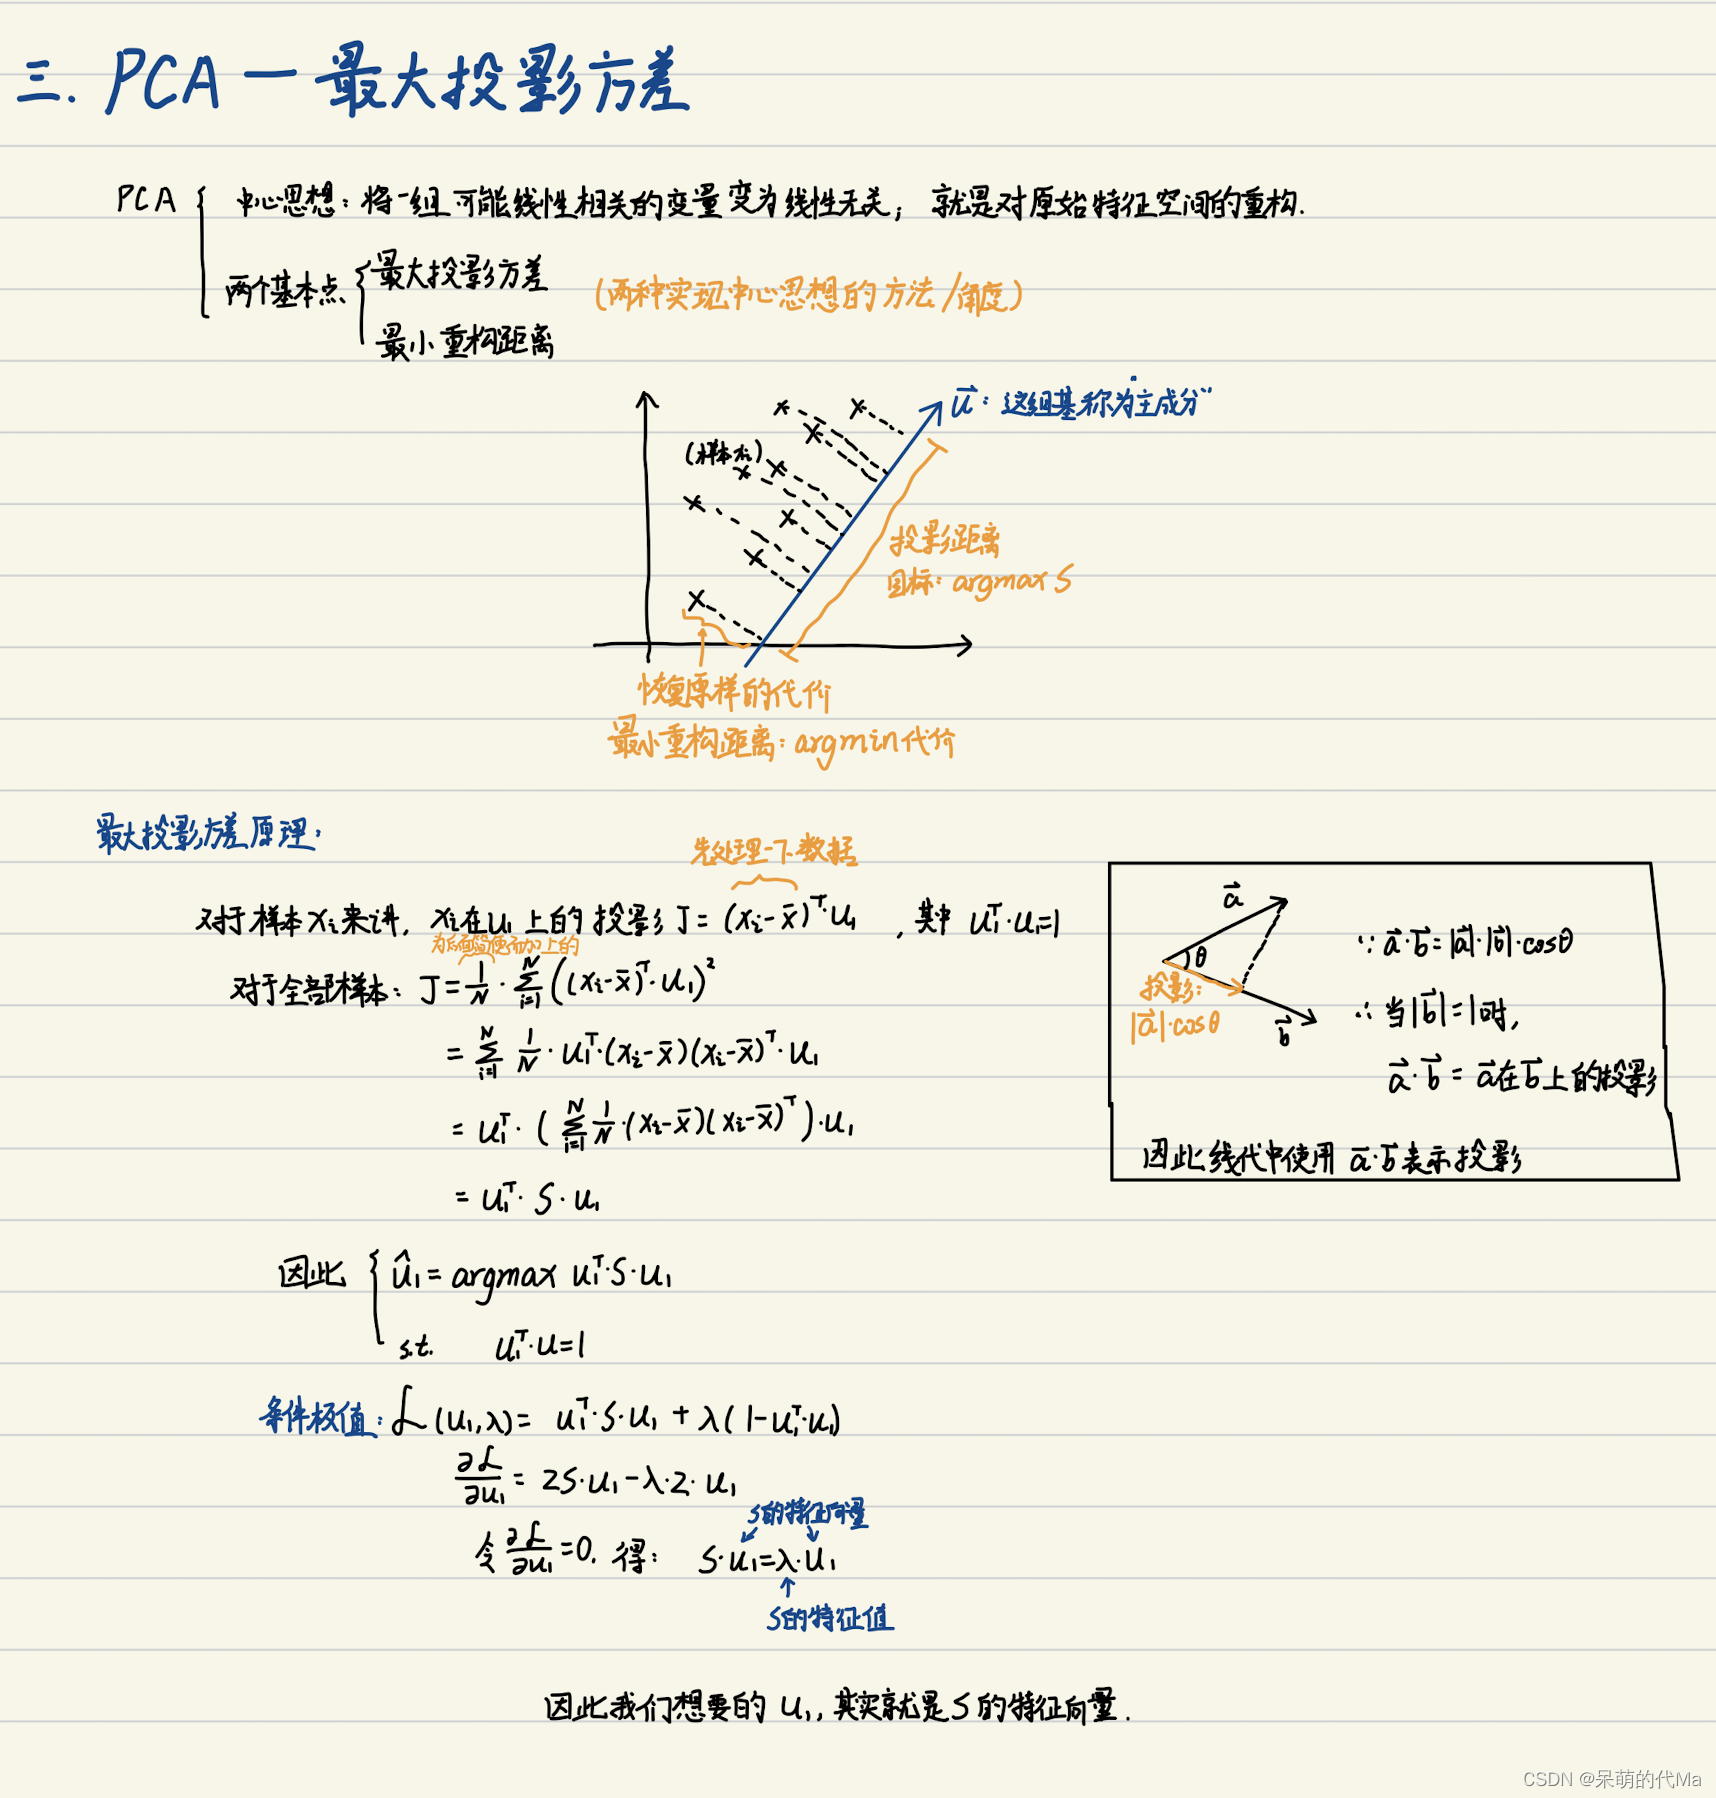 三. PCA — 最大投影方差
PCA { 中心思想：将一组可能线性相关的变量变为线性无关；就是对原始特征空间的重构.
两个基本点 { 最大投影方差
(两种实现中心思想的方法/角度)
最小重构距离
u⃗：这组基称为"主成分"
(样本xᵢ)
投影距离
目标：argmax S
恢复原样的代价
最小重构距离：argmin代价
最大投影方差原理：
先处理一下数据
对于样本xᵢ来讲，xᵢ在u₁上的投影 J = (xᵢ-x̄)ᵀ·u₁，其中 u₁ᵀ·u₁=1
为后面简便而加上的
对于全部样本：J = 1/N · Σᵢ₌₁ᴺ ((xᵢ-x̄)ᵀ·u₁)²
= Σᵢ₌₁ᴺ 1/N · u₁ᵀ·(xᵢ-x̄)(xᵢ-x̄)ᵀ·u₁
= u₁ᵀ·(Σᵢ₌₁ᴺ 1/N·(xᵢ-x̄)(xᵢ-x̄)ᵀ)·u₁
= u₁ᵀ·S·u₁
a⃗
θ
投影：
|a⃗|·cosθ
b⃗
∵ a⃗·b⃗=|a⃗|·|b⃗|·cosθ
∴ 当|b⃗|=1时，
a⃗·b⃗ = a⃗在b⃗上的投影
因此线代中使用 a⃗·b⃗表示投影
因此 { û₁ = argmax u₁ᵀ·S·u₁
s.t. u₁ᵀ·u=1
条件极值：ℒ(u₁,λ) = u₁ᵀ·S·u₁ + λ(1-u₁ᵀ·u₁)
∂ℒ/∂u₁ = 2S·u₁-λ·2·u₁
S的特征向量
令 ∂ℒ/∂u₁=0. 得： S·u₁=λ·u₁
S的特征值
因此我们想要的 u₁, 其实就是S的特征向量.
CSDN @呆萌的代Ma